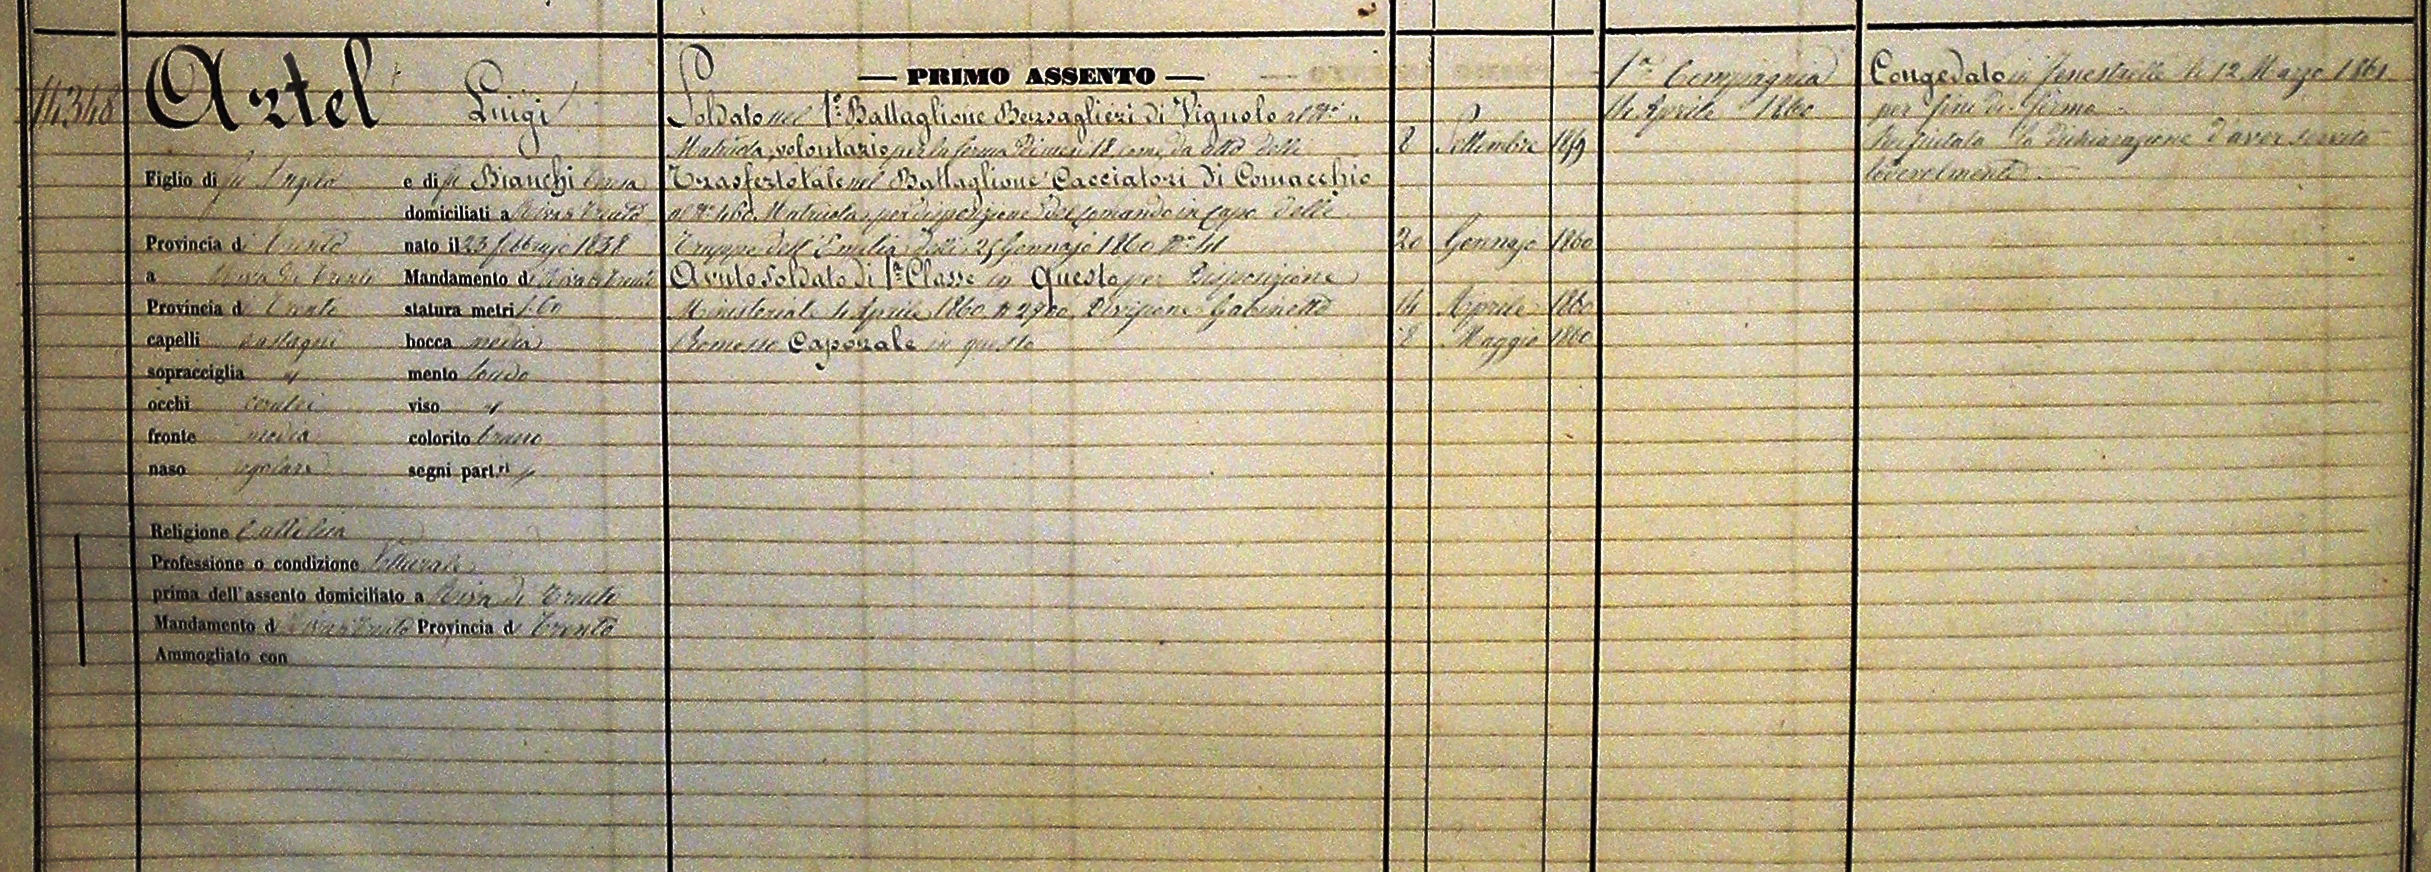 14348
Artel Luigi
Figlio di fu Angelo e di fu Bianchi Teresa
domiciliati a Riva di Trento
Provincia di Trento nato il 23 febbrajo 1838
a Riva di Trento Mandamento di Riva di Trento
Provincia di Trento statura metri 1.60
capelli castagni bocca media
sopracciglia " mento tondo
occhi cerulei viso "
fronte media colorito bruno
naso regolare segni part.ri
Religione Cattolica
Professione o condizione
prima dell'assento domiciliato a Riva di Trento
Mandamento di Riva di Trento Provincia di Trento
Ammogliato con
— PRIMO ASSENTO —
Soldato nel 1° Battaglione Bersaglieri di Vignolo al N°
Matricola, volontario per la ferma di mesi 18, come da atto delli 8 Settembre 1859
Trasferto tale nel Battaglione Cacciatori di Comacchio
al N° 460 Matricola, per disposizione del Comando in Capo delle
Truppe dell'Emilia delli 25 Gennajo 1860 N° 41 20 Gennajo 1860
Avuto Soldato di 1a Classe in Questo per Disposizione
Ministeriale 4 Aprile 1860 N 2900, Divisione Gabinetto 14 Aprile 1860
Promosso Caporale in questo 8 Maggio 1860
1a Compagnia
14 Aprile 1860
Congedato in Fenestrelle li 12 Marzo 1861
per fine di ferma
la dichiarazione d'aver servito
lodevolmente